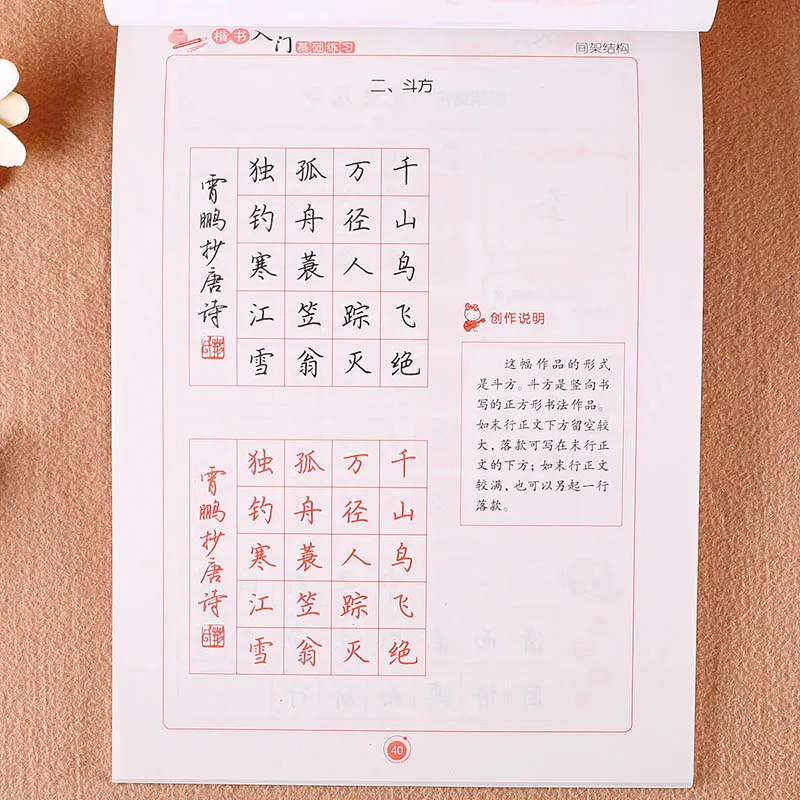 楷书入门基础练习
间架结构
二、斗方
千山鸟飞绝
万径人踪灭
孤舟蓑笠翁
独钓寒江雪
霄鹏抄唐诗
千山鸟飞绝
万径人踪灭
孤舟蓑笠翁
独钓寒江雪
霄鹏抄唐诗
创作说明
这幅作品的形式
是斗方。斗方是竖向书
写的正方形书法作品。
如末行正文下方留空较
大，落款可写在末行正
文的下方；如末行正文
较满，也可以另起一行
落款。
40